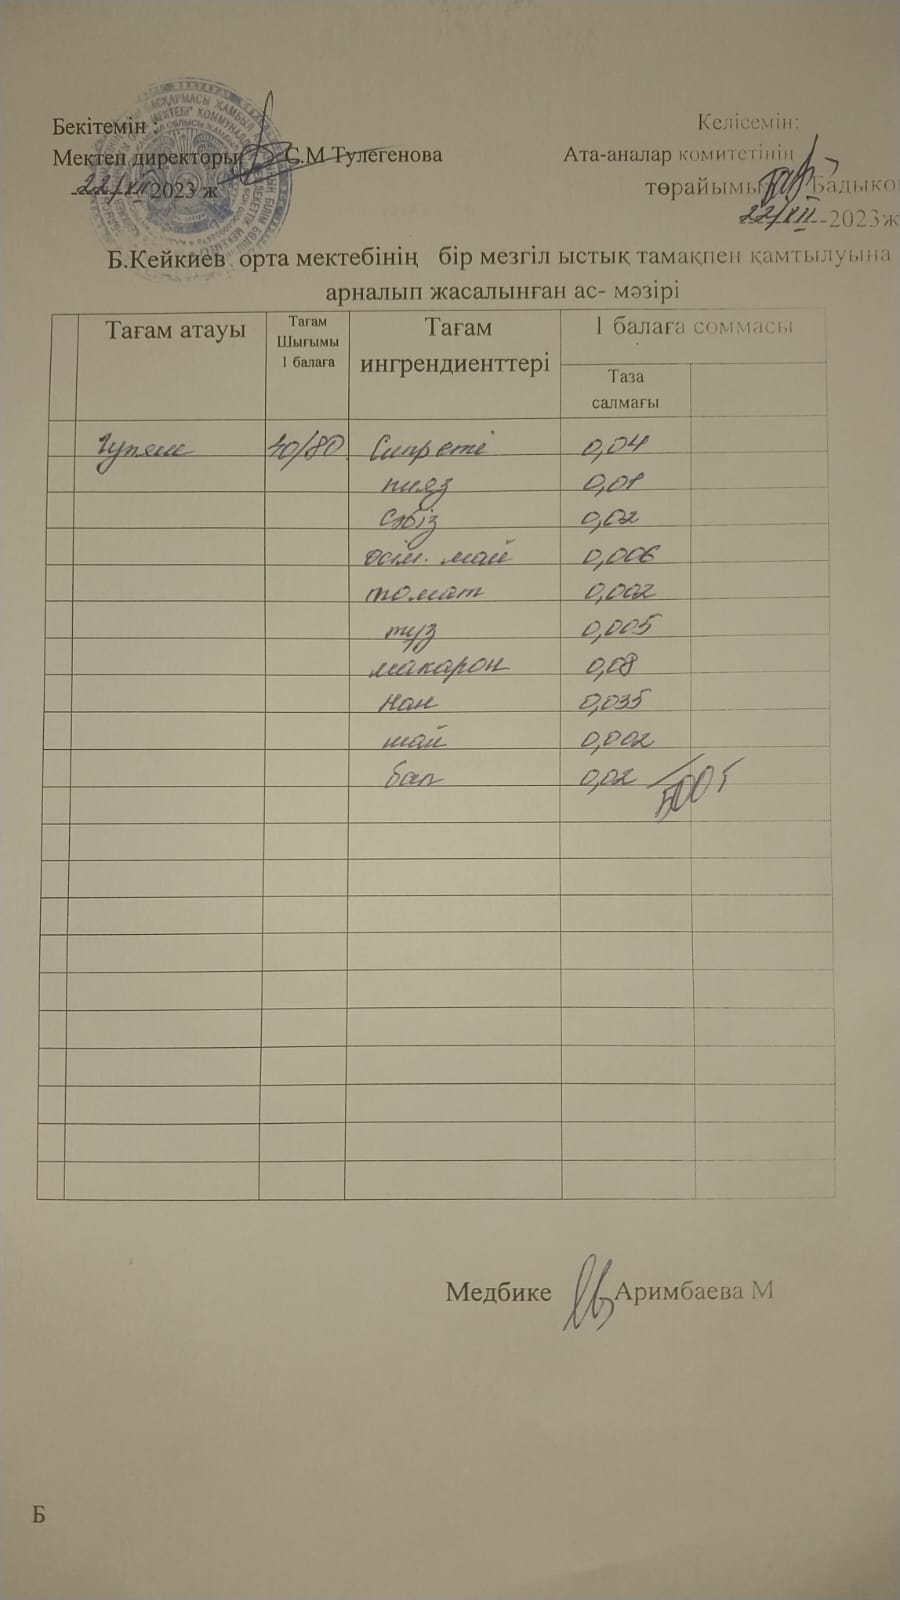 Бекітемін :
Мектеп директоры С.М Тулегенова
22/XII 2023 ж
Келісемін:
Ата-аналар комитетінің
төрайымы Бадыко
22/XII 2023ж
Б.Кейкиев орта мектебінің бір мезгіл ыстық тамақпен қамтылуына
арналып жасалынған ас- мәзірі
Тағам атауы
Тағам
Шығымы
1 балаға
Тағам
ингрендиенттері
1 балаға соммасы
Таза
салмағы
Гуляш /80 еті 0,04
пияз 0,01
сәбіз 0,02
өсім. май 0,006
томат 0,002
туз 0,005
макарон 0,08
нан 0,035
шай 0,002
бал 0,02
500 т
Медбике Аримбаева М
Б